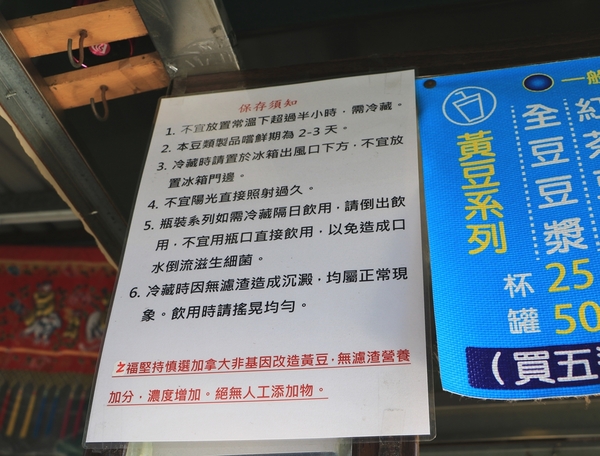 保存須知
1. 不宜放置常溫下超過半小時，需冷藏。
2. 本豆類製品嚐鮮期為 2-3 天。
3. 冷藏時請置於冰箱出風口下方，不宜放
置冰箱門邊。
4. 不宜陽光直接照射過久。
5. 瓶裝系列如需冷藏隔日飲用，請倒出飲
用，不宜用瓶口直接飲用，以免造成口
水倒流滋生細菌。
6. 冷藏時因無濾渣造成沉澱，均屬正常現
象。飲用時請搖晃均勻。
之福堅持慎選加拿大非基因改造黃豆，無濾渣營養
加分，濃度增加。絕無人工添加物。
黃豆系列
一般
全豆豆漿
杯 25
罐 50
紅茶
（買五